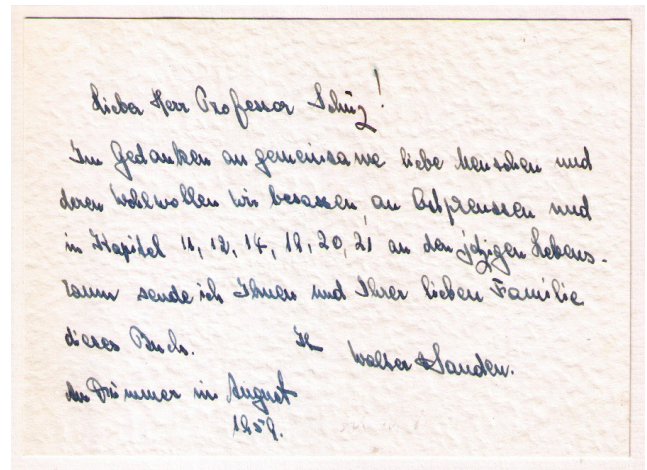 Lieber Herr Professor Schüz!
Im Gedanken an gemeinsame liebe Menschen und
deren Wohlwollen wir besassen, an Ostpreussen und
in Kapitel 11, 12, 14, 18, 20, 21 an den jetzigen Lebens-
raum sende ich Ihnen und Ihrer lieben Familie
dieses Buch. Ihr Walter v Sanden.
Am Dümmer im August
1959.